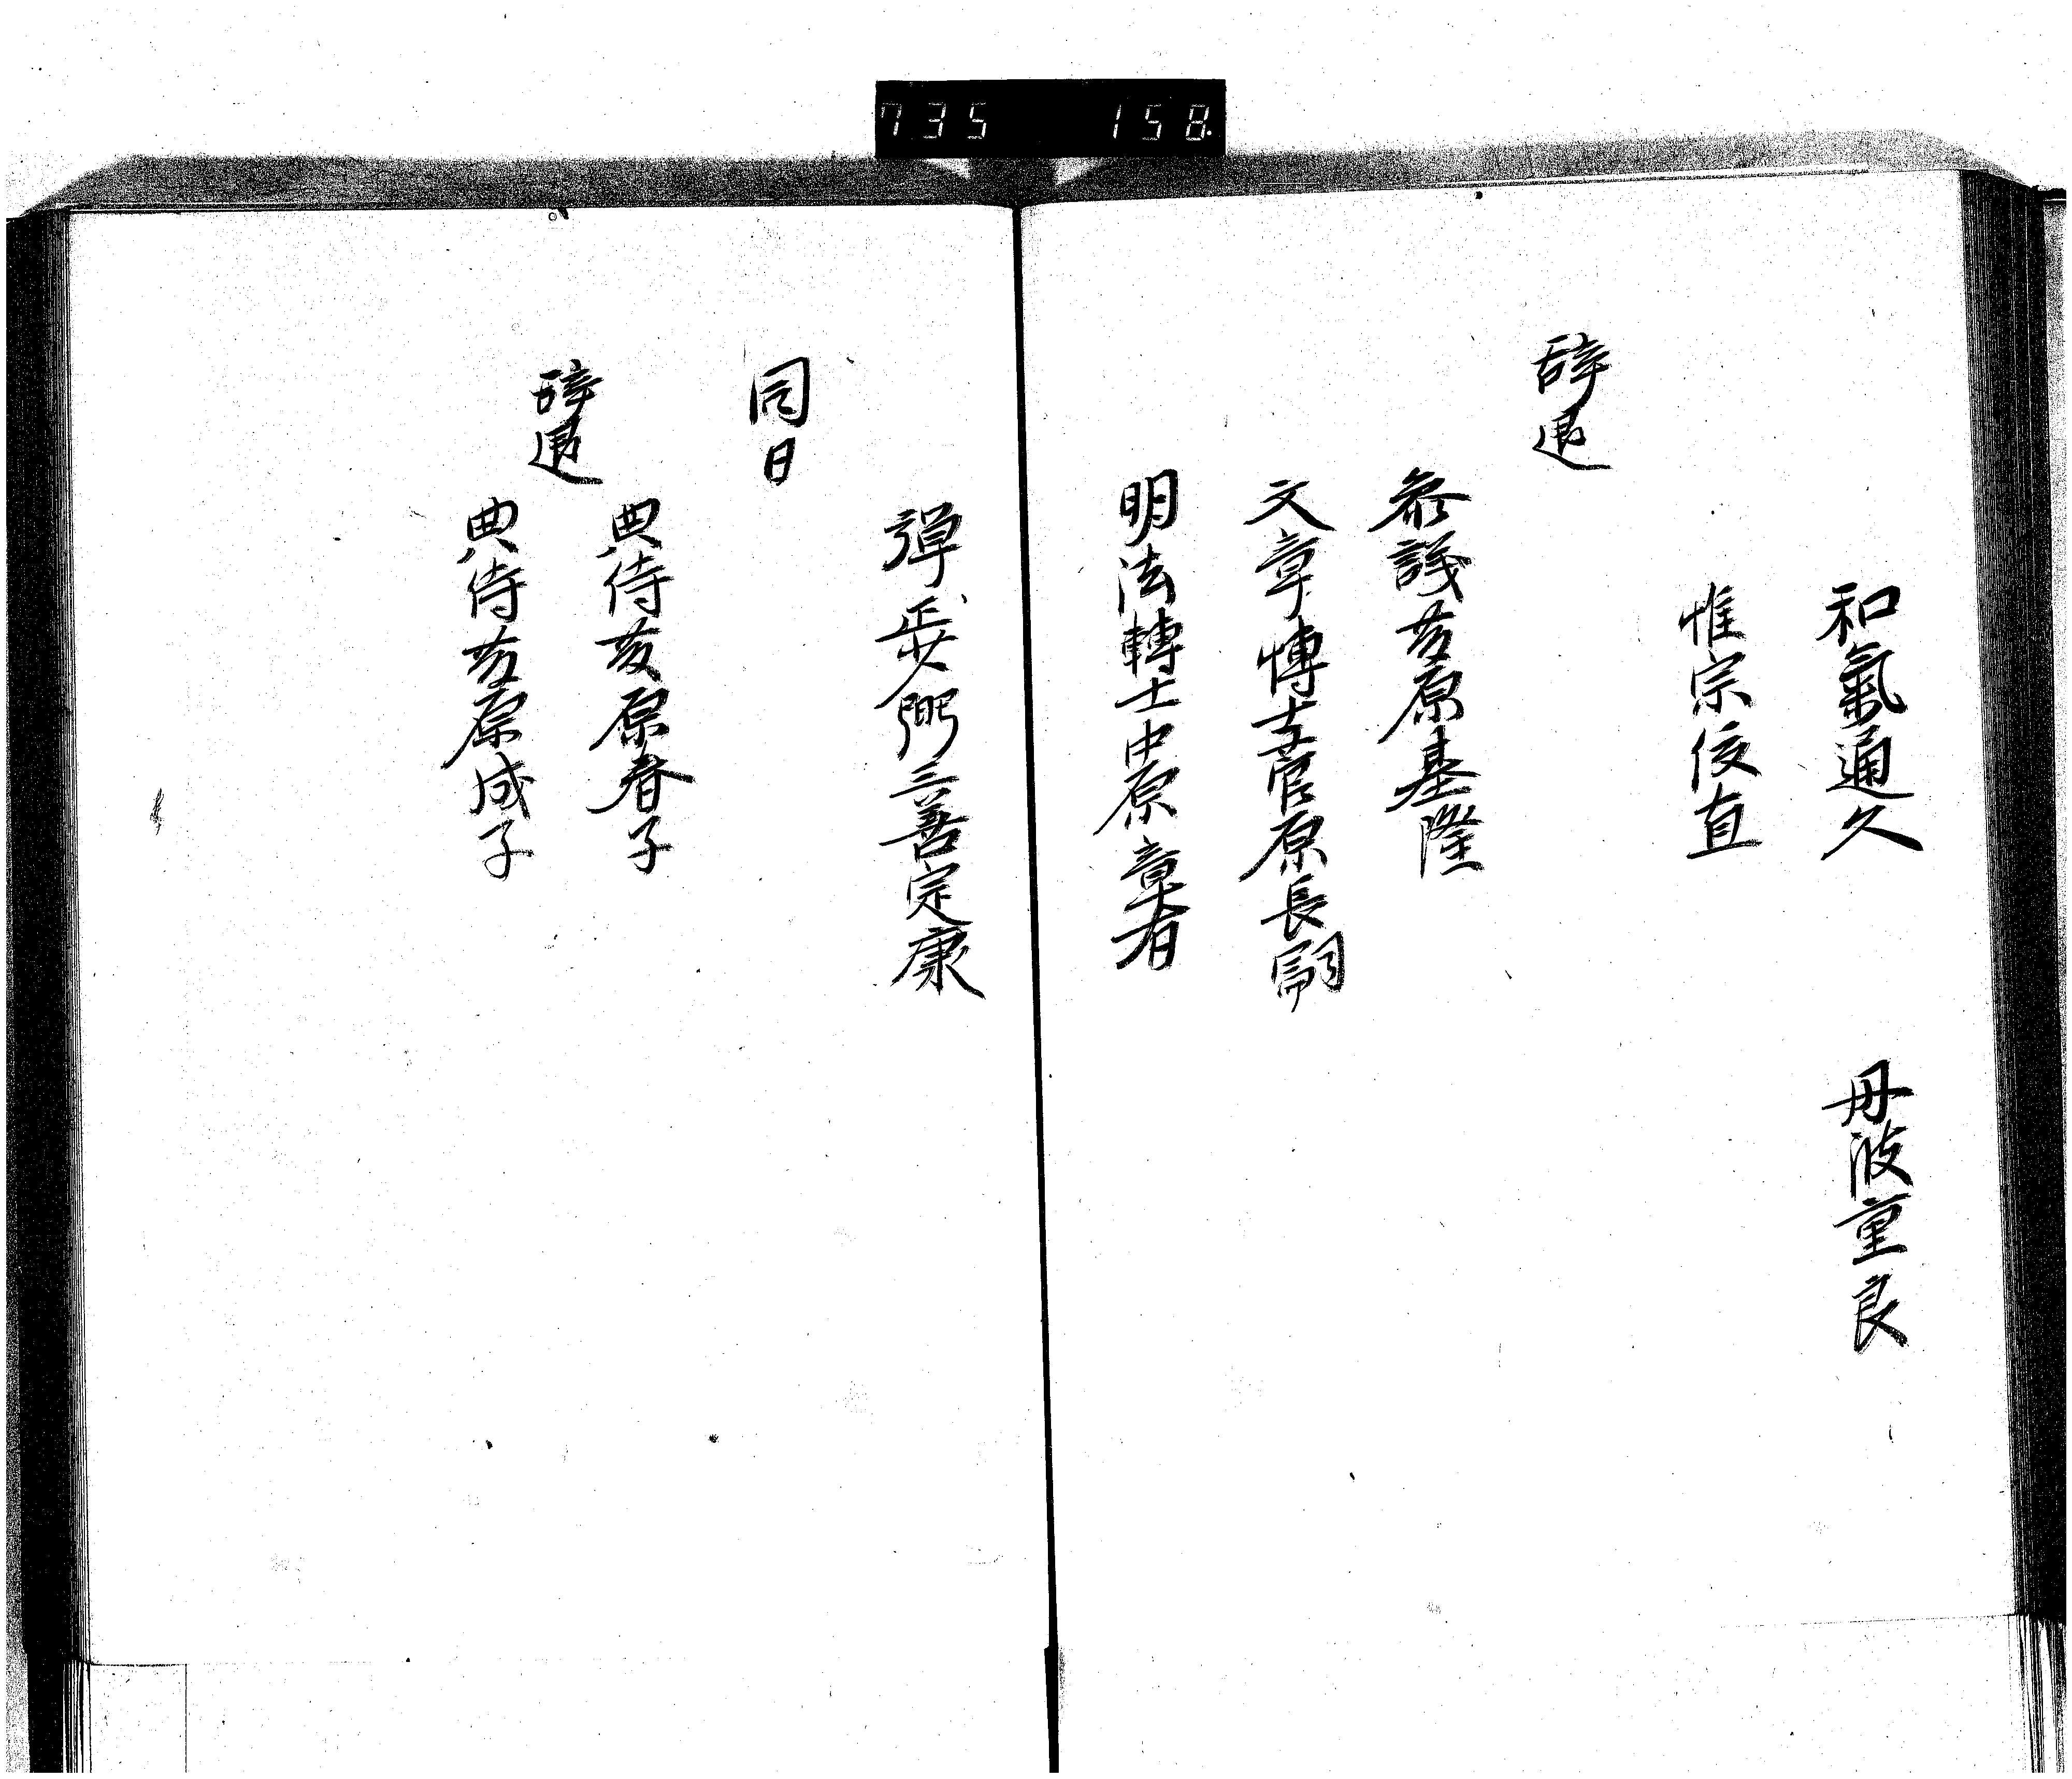 735 158
和氣通久 丹波重良
惟宗俊直
辞退
参議藤原基隆
文章博士菅原長嗣
明法博士中原章有
弾正少弼三善定康
同日
典侍藤原春子
辞退
典侍藤原成子